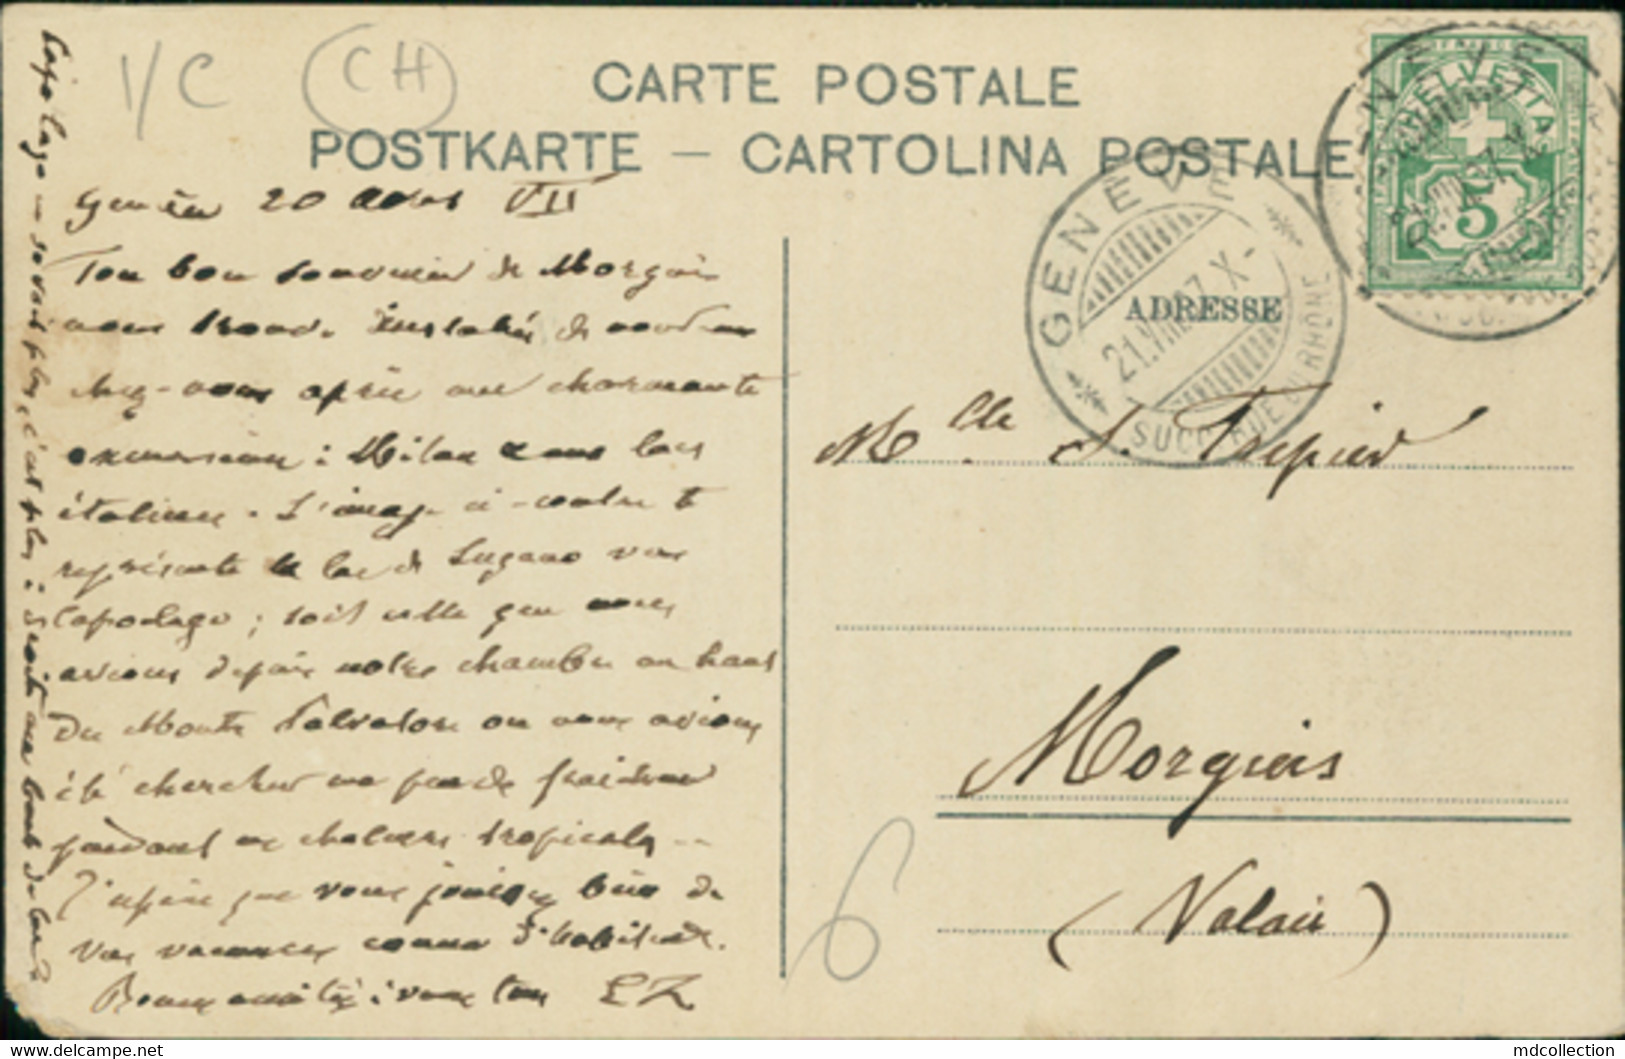 I/C
CH
CARTE POSTALE
POSTKARTE — CARTOLINA POSTALE
HELVETIA
5
GENEVE
21.VIII.07.X-
SUCC. RUE DU RHÔNE
ADRESSE
Genève 20 août VII
Ton bon souvenir de Morgins
nous trouve installés de nouveau
chez-nous après une charmante
excursion : Milan et les lacs
italiens. L'image ci-contre te
représente le lac de Lugano vers
Capolago ; soit celle que nous
avions depuis notre chambre en haut
du Monte Salvatore où nous avions
été chercher un peu de fraîcheur
pendant les chaleurs tropicales --
J'espère que vous jouissez bien de
vos vacances comme d'habitude.
Bonnes amitiés à vous tous EZ
Capo Lago - se voit plus, c'est plus à droite au bout du lac
Mlle J. Trepier
Morgins
(Valais)
6
mdcollection